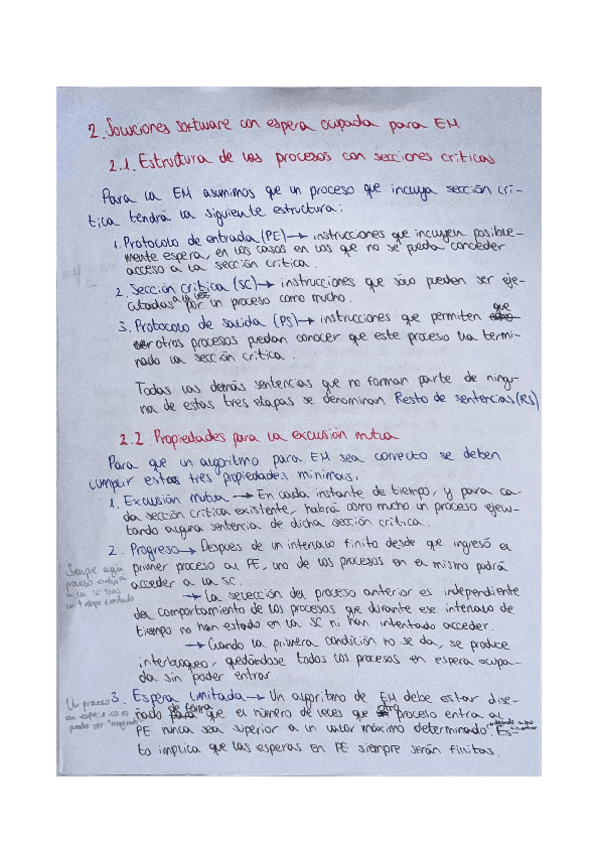 2. Soluciones software con espera ocupada para EM
2.1. Estructura de los procesos con secciones criticas
Para la EM asumimos que un proceso que incluya sección crí-
tica tendrá la siguiente estructura:
1. Protocolo de entrada (PE) → instrucciones que incluyen posible-
mente espera, en los casos en los que no se pueda conceder
acceso a la sección crítica.
2. Sección crítica (SC) → instrucciones que sólo pueden ser eje-
cutadas a la vez por un proceso como mucho.
3. Protocolo de salida (PS) → instrucciones que permiten que
otros procesos puedan conocer que este proceso ha termi-
nado la sección crítica.
Todas las demás sentencias que no forman parte de ningu-
na de estas tres etapas se denominan Resto de sentencias (RS)
2.2. Propiedades para la exclusión mutua
Para que un algoritmo para EM sea correcto se deben
cumplir estas tres propiedades mínimas.
1. Exclusión mutua → En cada instante de tiempo, y para ca-
da sección crítica existente, habrá como mucho un proceso ejecu-
tando alguna sentencia de dicha sección crítica.
2. Progreso → Despues de un intervalo finito desde que ingresó el
primer proceso al PE, uno de los procesos en el mismo podrá
acceder a la SC.
Siempre algún
proceso
en la SC tras
un tiempo limitado
→ La selección del proceso anterior es independiente
del comportamiento de los procesos que durante ese intervalo de
tiempo no han estado en la SC ni han intentado acceder.
→ Cuando la primera condición no se da, se produce
interbloqueo, quedándose todos los procesos en espera ocupa-
da sin poder entrar
3. Espera limitada → Un algoritmo de EM debe estar dise-
ñado de forma que el número de veces que otro proceso entra al
PE nunca sea superior a un valor máximo determinado. Es-
to implica que las esperas en PE siempre serán finitas.
Un proceso
en específico no
puede ser